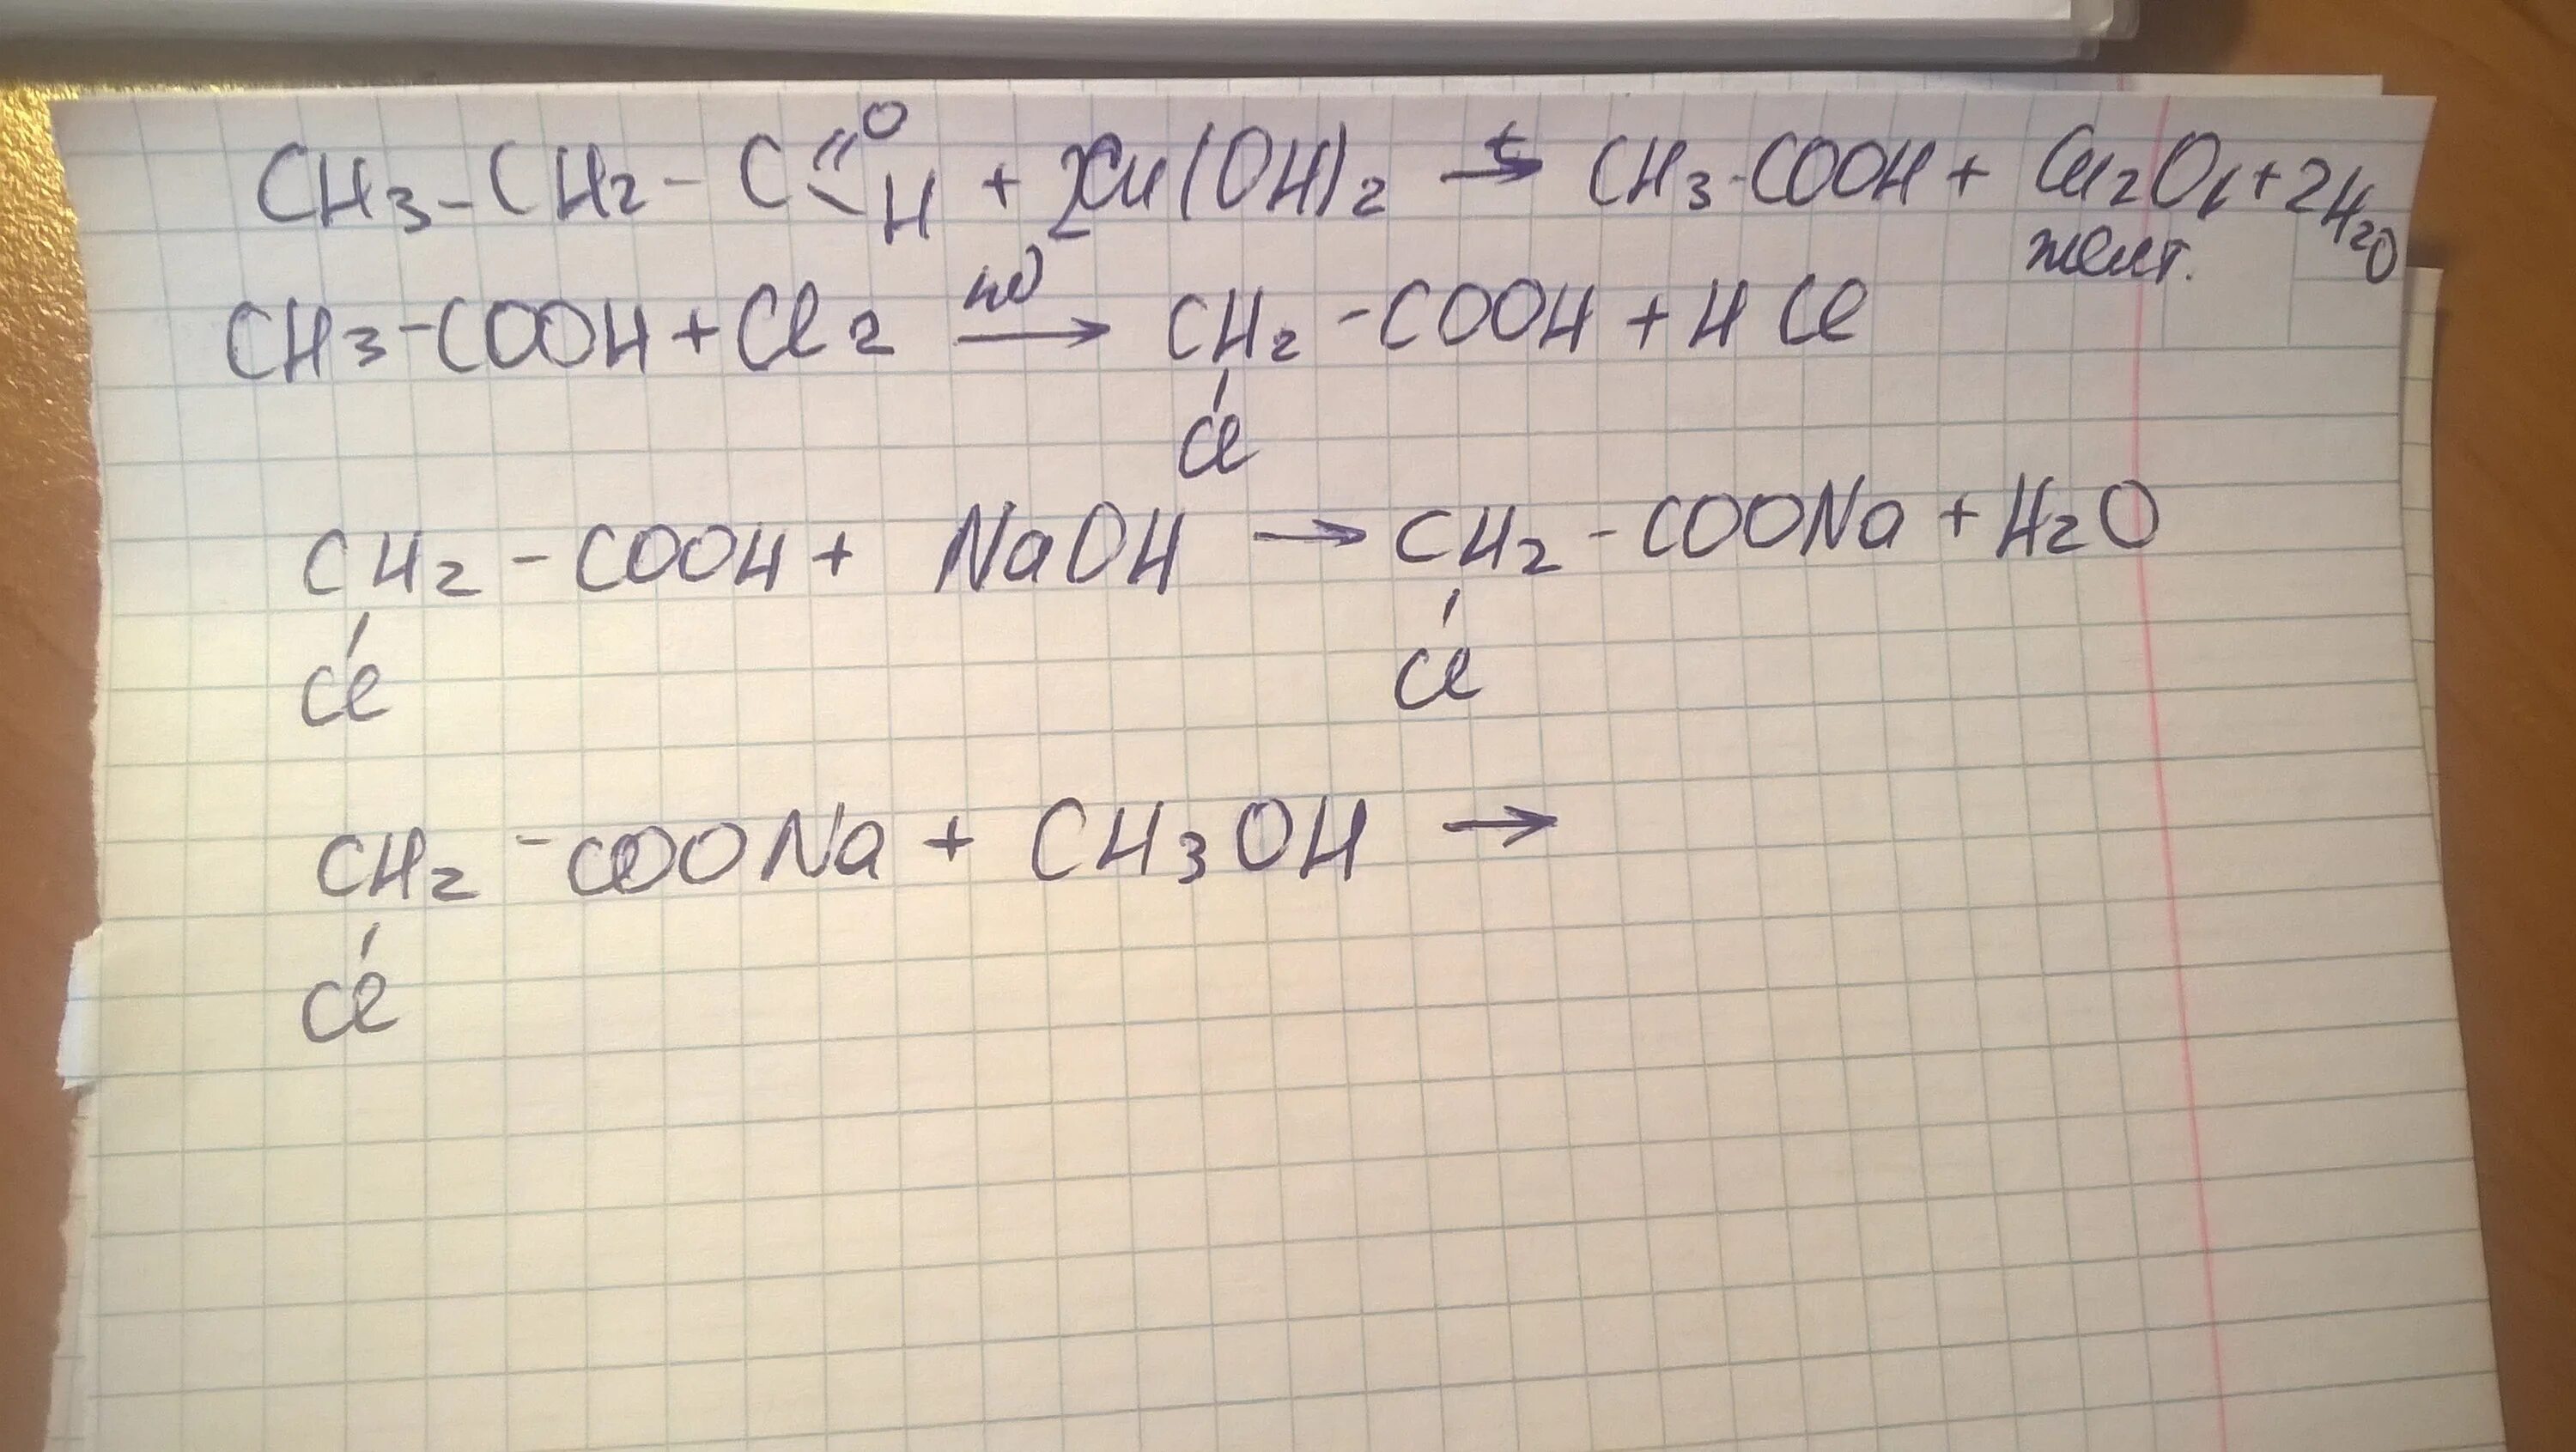 CH3-CH2-C=O H + 2Cu(OH)2 →t CH3-COOH + Cu2O↓+2H2O
желт.
CH3-COOH+Cl2 →hν CH2-COOH + HCl
Cl
CH2-COOH + NaOH → CH2-COONa + H2O
Cl Cl
CH2-COONa + CH3OH →
Cl